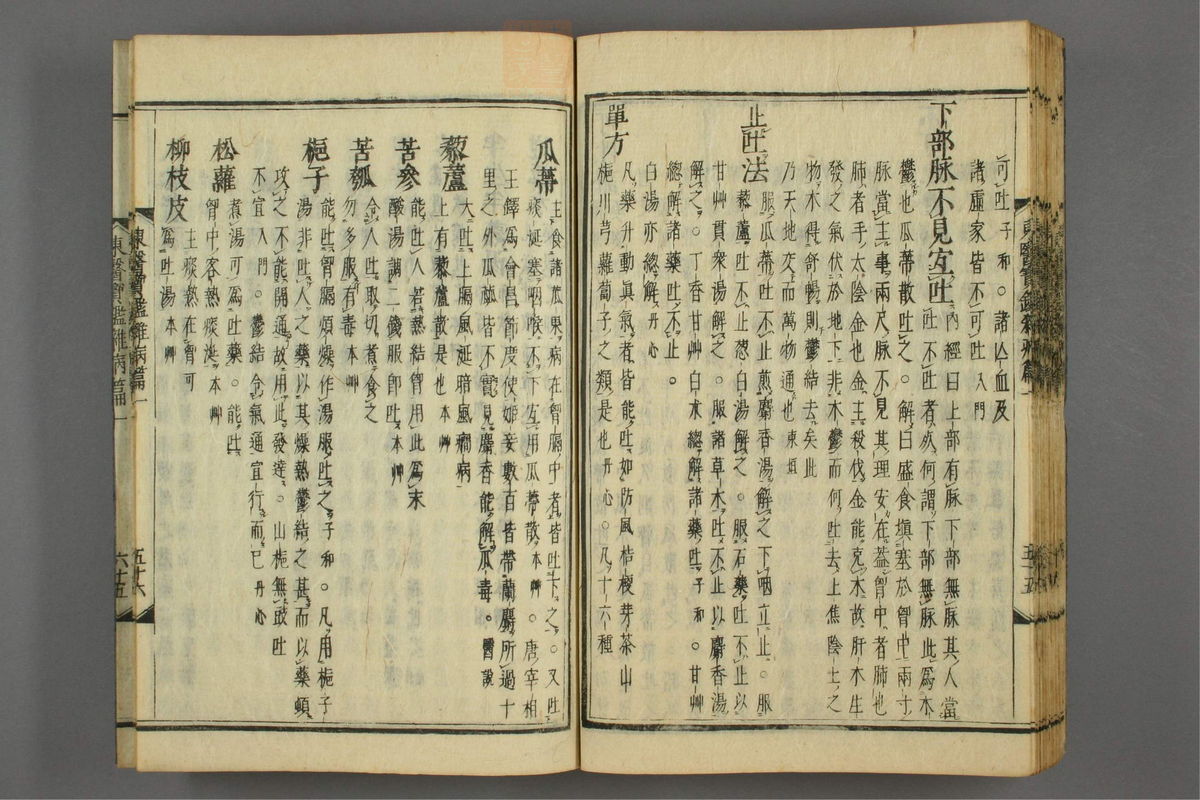 可吐子和○諸亾血及
諸虛家皆不可吐入門
下部脉不見宜吐
內經曰上部有脉下部無脉其人當
吐不吐者死何謂下部無脉此爲木
鬱也瓜蔕散吐之○解曰盛食塡塞於胷中兩寸
脉當主事兩尺脉不見其理安在盖胷中者肺也
肺者手太陰金也金主殺伐金能克木故肝木生
發之氣伏於地下非木鬱而何吐去上焦陰土之
物木得舒暢則鬱結去矣此
乃天地交而萬物通也東垣
止吐法
服瓜蔕吐不止煎麝香湯解之下咽立止○服
藜蘆吐不止葱白湯解之○服石藥吐不止以
甘艸貫衆湯解之○服諸草木吐不止以麝香湯
解之○丁香甘艸白朮總解諸藥吐子和○甘艸
總解諸藥吐不止○
白湯亦總解丹心
單方
凡藥升動眞氣者皆能吐如防風桔梗芽茶山
梔川芎蘿蔔子之類是也丹心○凡十六種
東醫寶鑑雜病篇一
五十五
瓜蔕
主食諸瓜果病在胷膈中者皆吐下之○又吐
痰涎塞咽喉不下宜用瓜蔕散本艸○唐宰相
王鐸爲會昌節度使姬妾數百皆帶蘭麝所過十
里之外瓜蓏皆不實見麝香能解瓜毒○醫說
藜蘆
大吐上膈風涎暗風癎病
上有藜蘆散是也本艸
苦參
能吐人若熱結胷用此爲末
酸湯調二錢服卽吐本艸
苦瓠
令人吐取切煮食之
勿多服有毒本艸
梔子
能吐胷膈煩燥作湯服吐之子和○凡用梔子
湯非吐人之藥以其燥熱鬱結之甚而以藥頓
攻之不能開通故用此發達○山梔無豉吐
不宜入門○鬱結令氣通宜行而已丹心
松蘿
煮湯可爲吐藥○能吐
胷中客熱痰涎本艸
柳枝皮
主痰熱在胷可
爲吐湯本艸
東醫寶鑑雜病篇一
五十六
六十五